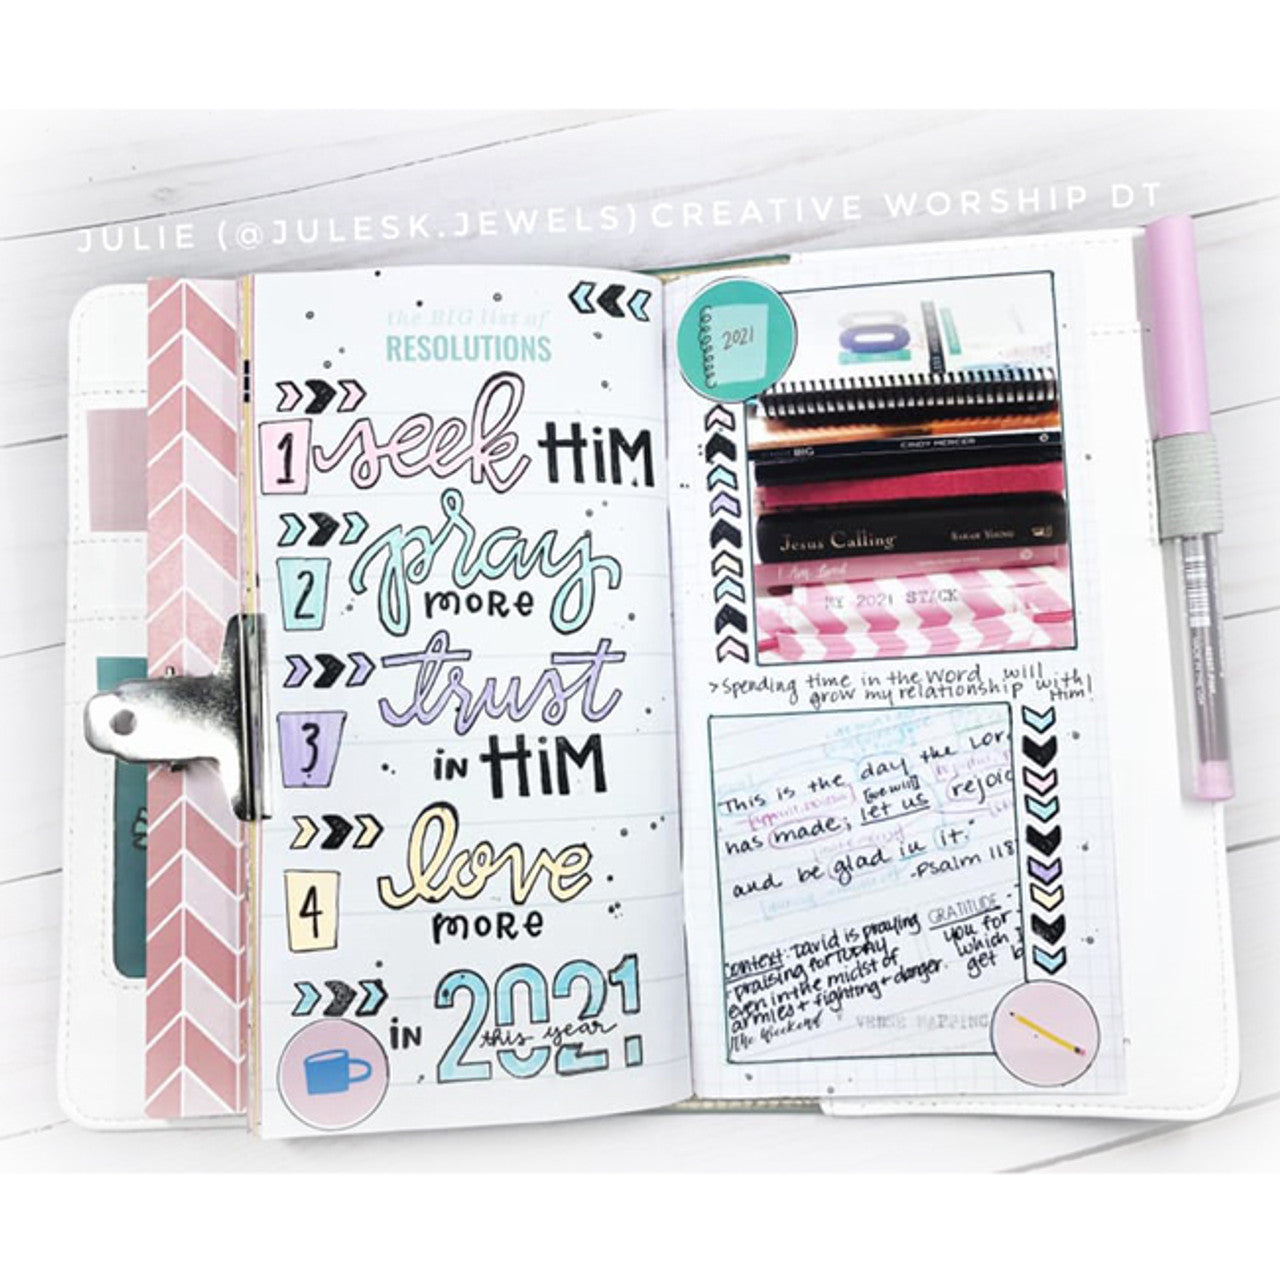 JULIE (@JULESK.JEWELS) CREATIVE WORSHIP DT
the BIG list of
RESOLUTIONS
1 seek HiM
2 pray
more
3 trust
in HiM
4 love
more
in 2021
this year
2021
BIG CINDY MERCER
Jesus Calling SARAH YOUNG
MY 2021 STACK
>Spending time in the Word will
grow my relationship with
Him!
This is the day the Lor
has made; [we will] let us rejoic
and be glad in it."
-Psalm 118
Context: David is praying
+ praising for TODAY
even in the midst of
armies + fighting + danger.
GRATITUDE -
you for
which I
get
VERSE MAPPING